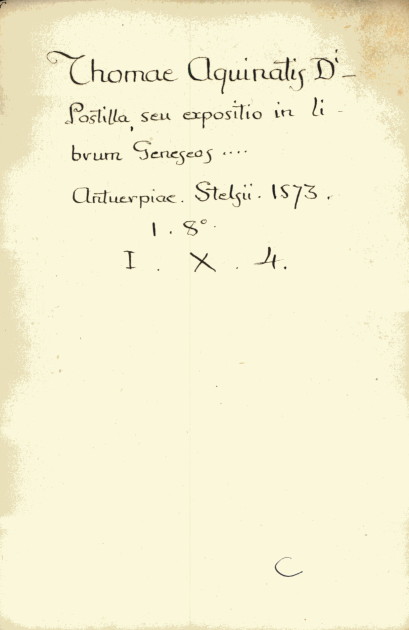 Thomae Aquinatis Di –
Postilla, seu expositio in li –
brum Geneseos ....
Antuerpiae. Stelsii. 1573.
1. 8º.
I . X . 4.
C